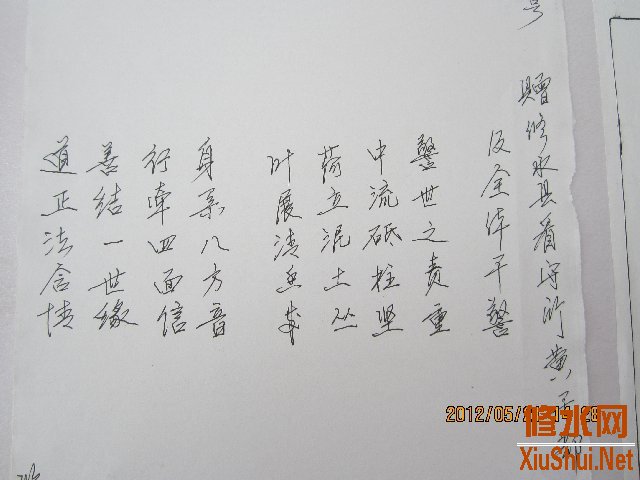 号
赠修水县看守所黄
及全体干警
警世之责重
中流砥柱坚
荷立泥土丛
叶展清
身系八方音
行牵四面信
善结一世缘
道正法含情
2012/05/2
修水网
XiuShui.Net